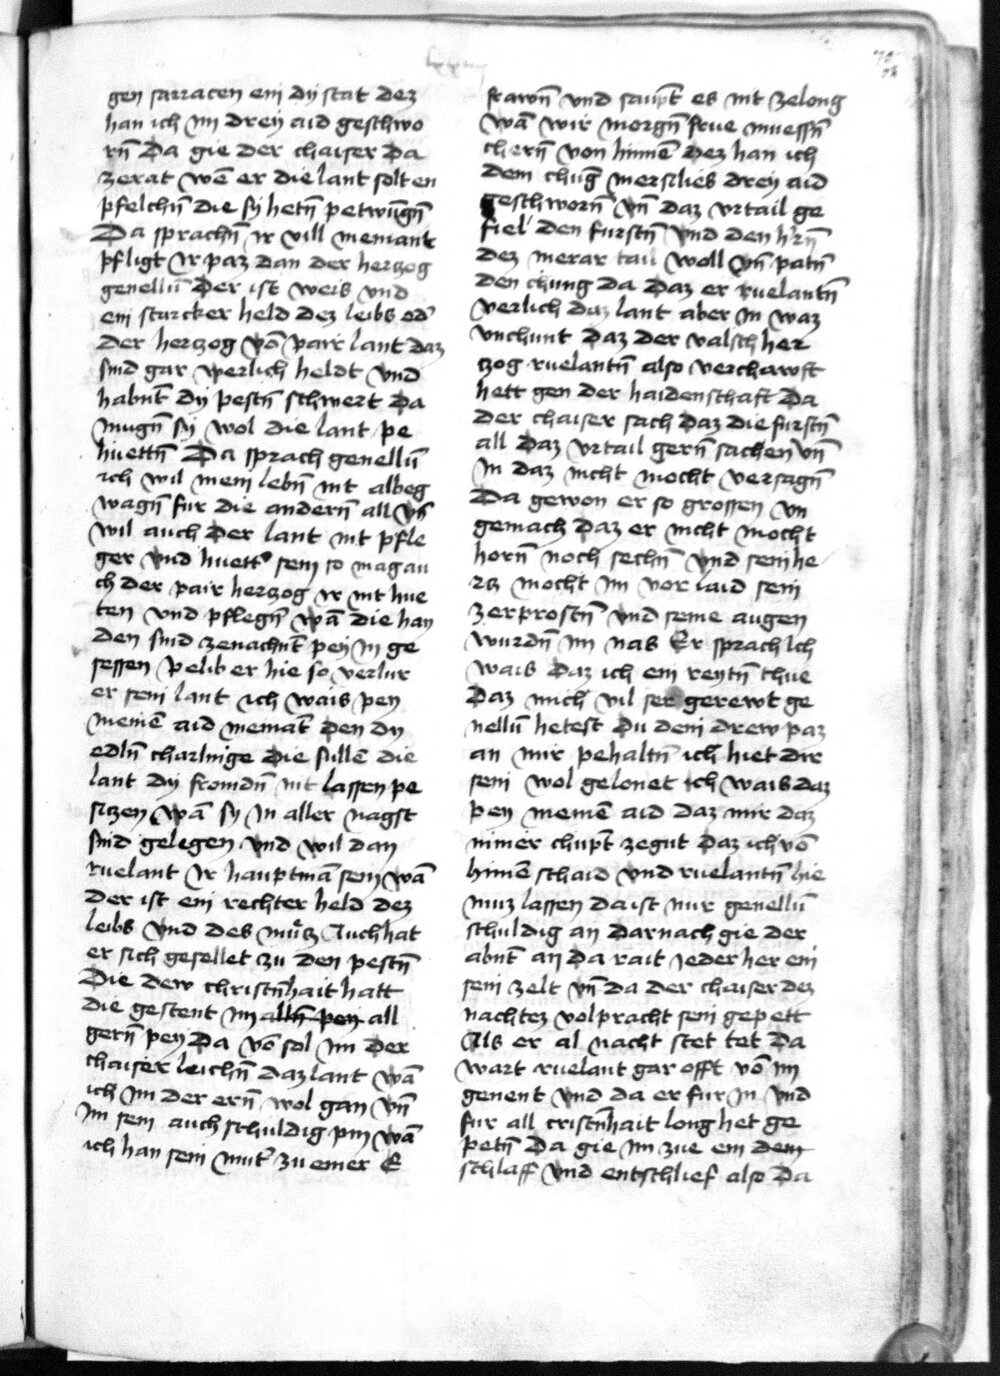 lxxviii
78
gen sarracen ein dy stat dez
han ich im drey aid geschwo
rn̄ Da gie der chaiser Da
zerat wē er die lant solt en
pfelchn̄ die sy hetn̄ petwūgn̄
Da sprachn̄ ir vill niemant
pfligt ir paz dan der herczog
genellū Der ist weis vnd
ein starcker held dez leibs od'
der herczog vō pair lant daz
sind gar werlich heldt vnd
habnt dy pestn̄ schwert Da
mugn̄ sy wol die lant pe
huettn̄ Da sprach genellū
ich wil mein lebn̄ nit albeg
wagn̄ fur die andern̄ all vn̄
wil auch der lant nit pfle
ger vnd huett' sein so mag au
ch der pair herczog ir nit hue
ten vnd pflegn̄ wā die hay
den sind ze nachnt pey in ge
sessen pelib er hie so verlur
er sein lant ich wais pey
meinē aid niemāt den dy
edln̄ charlnige die sullē die
lant dy fromdn̄ nit lassen pe
siczen wā sy in aller nagst
sind gelegen vnd wil dan
ruelant ir hauptmā sein wā
der ist ein rechter held dez
leibs vnd des mutz Auch hat
er sich gesellet zu den pestn̄
Die dew christn̄hait hatt
die gestent im alln̄ pey all
gern̄ pey Da vō sol im der
chaiser leichn̄ daz lant wā
ich im der ern̄ wol gan vn̄
im sein auch schuldig pin wā
ich han sein mut' zu einer E
frawn̄ vnd saupt es nit ze long
wā wir morgn̄ frue muessn̄
chern̄ von hinnē Dez han ich
dem chūg mersilies drey aid
geschworn̄ vn̄ daz vrtail ge
fiel den furstn̄ vnd den h'rn̄
dez merar tail woll vn̄ patn̄
den chung da daz er ruelantn̄
verlich daz lant aber in waz
vnchunt daz der valsch her
zog ruelantn̄ also verchawft
hett gen der haidenschaft Da
der chaiser sach daz die furstn̄
all daz vrtail gern̄ sachen vn̄
in daz nicht mocht versagn̄
Da gewon er so grossen vn
gemach daz er nicht mocht
horn̄ noch sechn̄ vnd sein he
rtz mocht im vor laid sein
zerprostn̄ vnd seine augen
wurdn̄ im nas Er sprach Ich
wais daz ich ein reytn̄ thue
Daz mich vil ser gerewt ge
nellū hetest du dein drew paz
an mir pehaltn̄ ich hiet dir
sein wol gelonet ich wais daz
pey meinē aid daz mir daz
nimer chupt zegut daz ich vō
hinnē schaid vnd ruelantn̄ hie
muz lassen da ist mir genellū
schuldig an Darnach gie der
abnt an Da rait ieder her ein
sein zelt vn̄ da der chaiser dez
nachtez volpracht sein gepett
Als er al nacht stet tet Da
wart ruelant gar offt vō im
genent vnd da er fur in vnd
fur all cristn̄hait long het ge
petn̄ Da gie im zue ein dem
schlaff vnd entschlief also Da